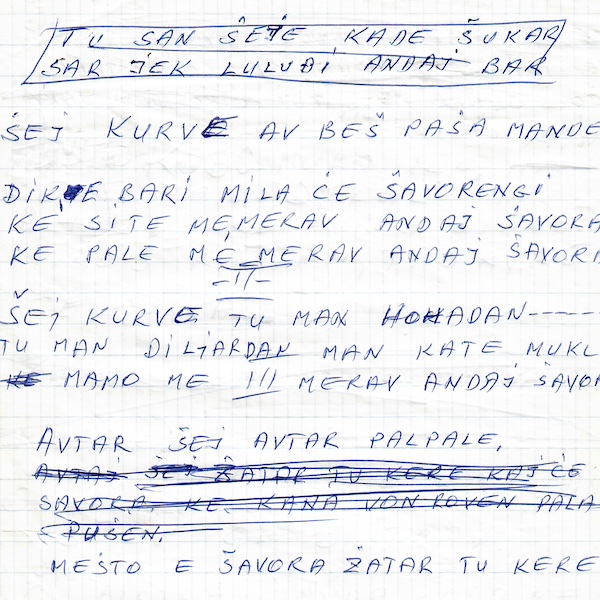 TU SAN ŠEJE KADE ŠUKAR
SAR JEK LULUĐI ANDAJ BAR
ŠEJ KURVE AV BEŠ PAŠA MANDE
DIKE BARI MILA ĆE ŠAVORENGI
KE SITE ME MERAV ANDAJ ŠAVORA
KE PALE ME MERAV ANDAJ ŠAVORA
-II-
ŠEJ KURVE TU MAN HOHADAN-----
TU MAN DILJARDAN MAN KATE MUKL
KE MAMO ME III MERAV ANDAJ ŠAVOR
AVTAR ŠEJ AVTAR PALPALE,
AVTAJ ŠEJ ŽATAR TU KERE KAJ ĆE
SAVORA, KE KANA VON ROVEN PALA
PUŠEN,
MEŠTO E ŠAVORA ŽATAR TU KERE